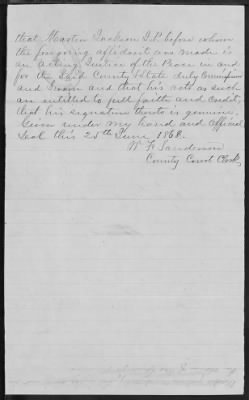 that Martin Jackson J.P. before whom
the foregoing affidavit was made is
an Acting Justice of the Peace in and
for the said County & State duly Commission
and Sworn and that his acts as such
are entitled to full faith and credit,
that his signature thereto is genuine.
Given under my hand and Official
Seal this 25th June, 1868.
W F Sanderson
County Court Clerk,